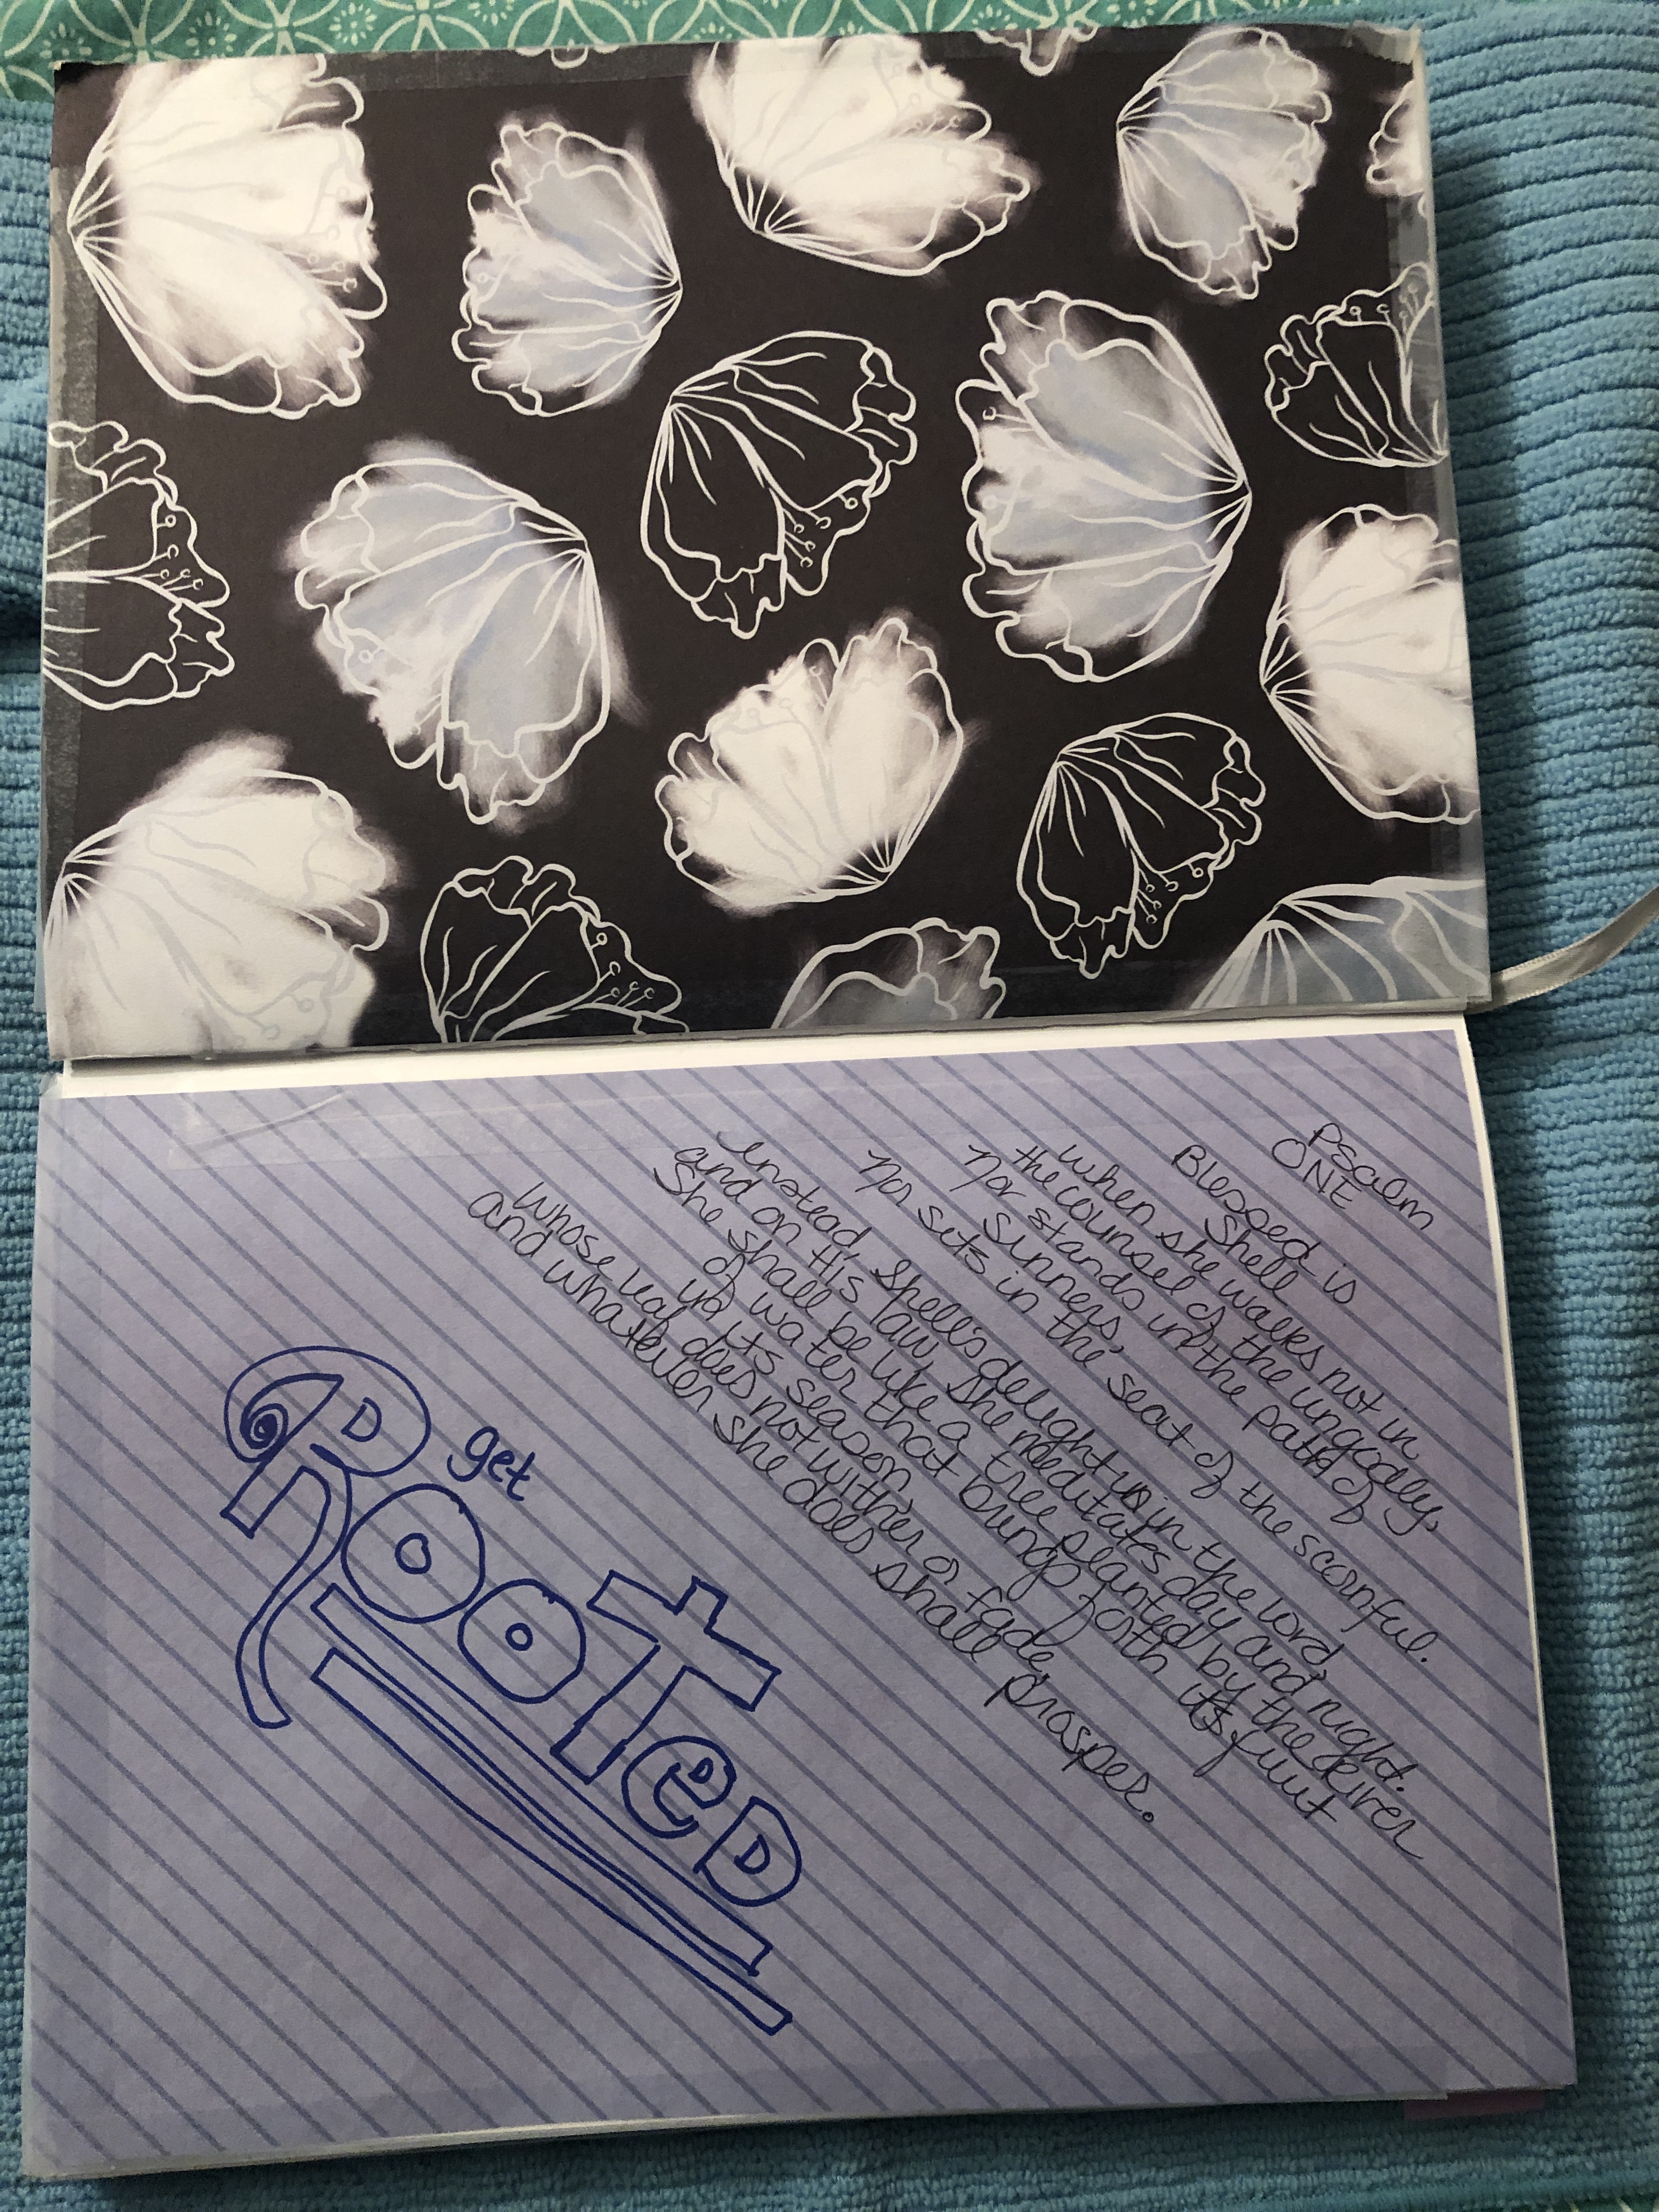 Psalm
ONE
Blessed is
Shell
when she walks not in
the counsel of the ungodly,
Nor stands in the path of
Sinners,
Nor sits in the seat of the scornful.
Instead, Shell's delight is in the Lord,
and on His law she meditates day and night.
She shall be like a tree planted by the river
of water that brings forth its fruit
in its season,
whose leaf does not wither or fade,
and whatever she does shall prosper.
get
RooTeD